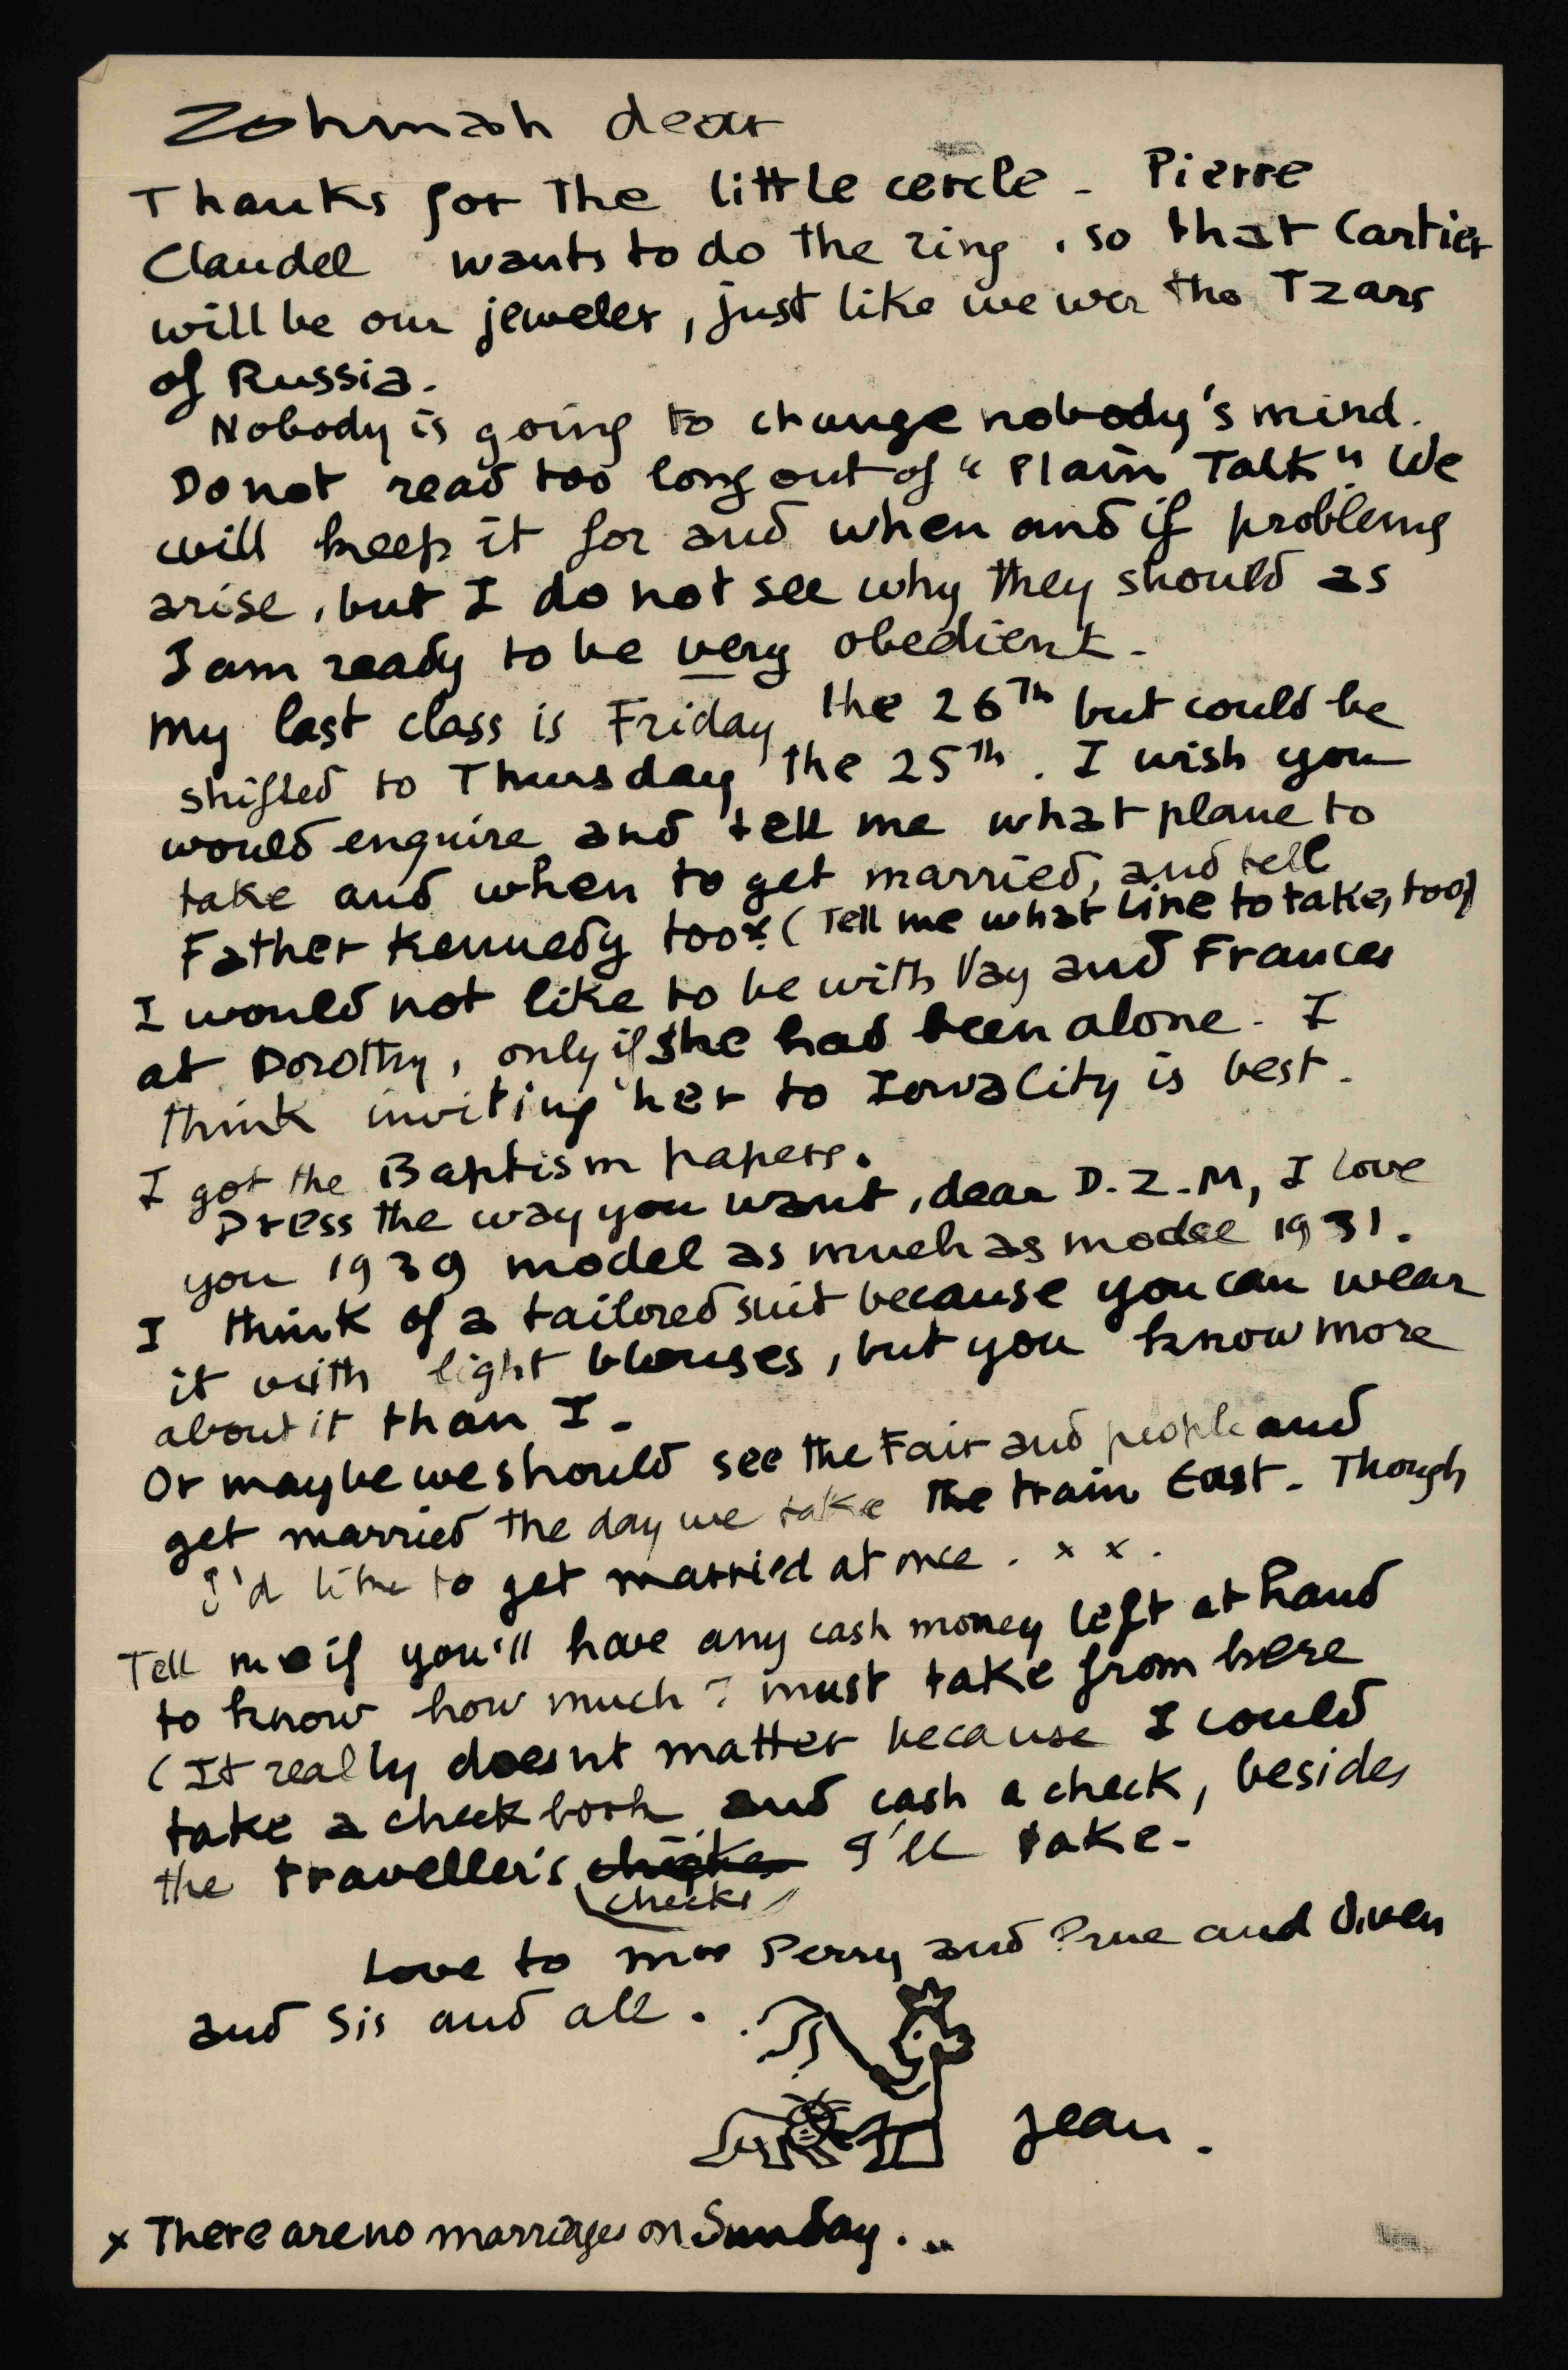 Zohmah dear
Thanks for the little cercle - Pierre
Claudel wants to do the ring, so that Cartier
will be our jeweler, just like we wer the Tzars
of Russia.
Nobody is going to change nobody's mind.
Do not read too long out of "Plain Talk". We
will keep it for and when and if problems
arise, but I do not see why they should as
I am ready to be very obedient.
My last class is Friday the 26th but could be
shifted to Thursday the 25th. I wish you
would enquire and tell me what plane to
take and when to get married, and tell
Father Kennedy too x. (Tell me what line to take, too)
I would not like to be with Vay and Frances
at Dorothy, only if she had been alone. I
think inviting her to Iowa City is best.
I got the Baptism papers.
Dress the way you want, dear D.Z.M, I love
you 1939 model as much as model 1931.
I think of a tailored suit because you can wear
it with light blouses, but you know more
about it than I.
Or maybe we should see the Fair and people and
get married the day we take the train East. Though
I'd like to get married at once. x x.
Tell me if you'll have any cash money left at hand
to know how much I must take from here
(It really doesnt matter because I could
take a check book and cash a check, besides
the traveller's checks I'll take.
Love to Mrs Perry and Prue and Owen
and Sis and all.
Jean.
x There are no marriages on Sunday...